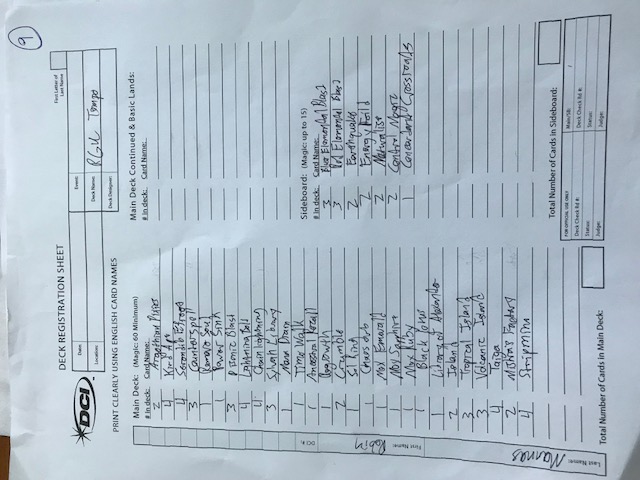 9
DCI
DECK REGISTRATION SHEET
First Letter of
Last Name
Date:
Event:
Location:
Deck Name: RGU Tempo
Deck Designer:
PRINT CLEARLY USING ENGLISH CARD NAMES
Main Deck: (Magic: 60 Minimum)
# in deck: Card Name:
2 Argothian Pixies
4 Kird Ape
4 Serendib Efreet
3 Counterspell
1 Remove Soul
1 Power Sink
3 Psionic Blast
4 Lightning Bolt
4 Chain lightning
3 Sylvan Library
1 Mana Drain
1 Time Walk
1 Ancestral Recall
1 Regrowth
2 Crumble
1 Sol Ring
1 Chaos orb
1 Mox Emerald
1 Mox Sapphire
1 Mox Ruby
1 Black Lotus
1 Library of Alexandria
2 Island
3 Tropical Island
3 Volcanic Island
4 Taiga
2 Mishra's Factory
4 Stripmine
Total Number of Cards in Main Deck:
Main Deck Continued & Basic Lands:
# in deck: Card Name:
Sideboard: (Magic: up to 15)
# in deck: Card Name:
3 Blue Elemental Blast
3 Red Elemental Blast
2 Earthquake
2 Energy Foild
2 Naturalise
2 Control Magic
1 Concordant Crossroads
Total Number of Cards in Sideboard:
FOR OFFICIAL USE ONLY
Main/SB: /
Deck Check Rd #:
Deck Check Rd #:
Status:
Status:
Judge:
Judge:
DCI #:
First Name: Robin
Last Name: Mannas